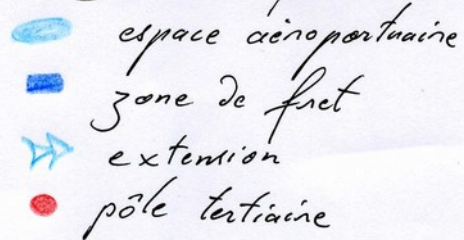 espace aéroportuaire
zone de fret
extension
pôle tertiaire